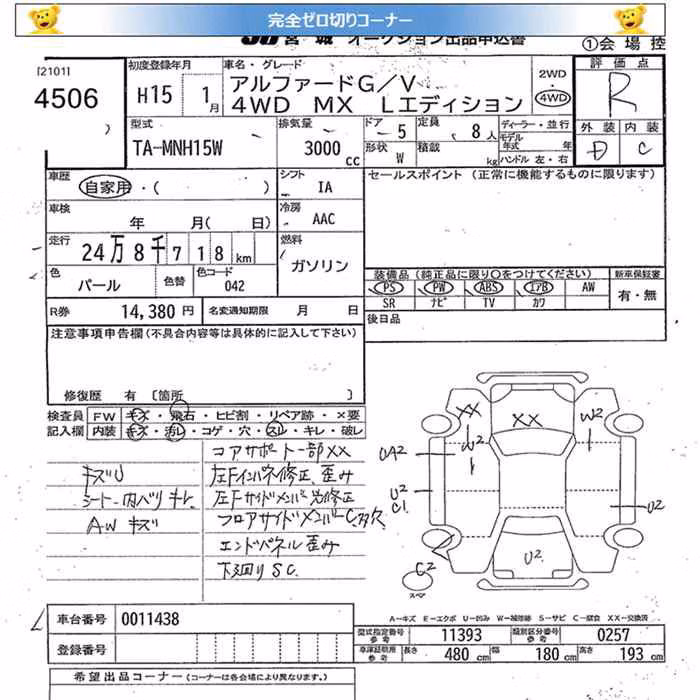 完全ゼロ切りコーナー
宮城 オークション出品申込書
①会 場 控
[2101]
4506
初度登録年月
H15 1月
車名・グレード
アルファードG/V
4WD MX Lエディション
2WD
・
4WD
評 価 点
R
外 装 内 装
D C
型式
TA-MNH15W
排気量
3000 cc
ドア 5
形状 W
定員 8人
積載 kg
ディーラー・並行
モデル年式 年式
ハンドル 左・右
車歴
自家用・( )
シフト
IA
セールスポイント (正常に機能するものに限ります)
車検
年 月( 日)
冷房
AAC
走行
24万8千718km
燃料
ガソリン
色
パール
色替
色コード
042
装備品(純正品に限り○をつけてください)
新車保証書
PS PW ABS エアB AW
SR ナビ TV カワ
有・無
R券 14,380 円
名変通知期限 月 日
後日品
注意事項申告欄(不具合内容等は具体的に記入して下さい)
修復歴 有 [箇所 ]
検査員 FW キズ・飛石・ヒビ割・リペア跡・×要
記入欄 内装 キズ・汚レ・コゲ・穴・スレ・キレ・破レ
コアサポート一部XX
キズU
左Fインパネ修正、歪み
シート・内バリキレ
左Fサイドメンバー先修正
AWキズ
フロアサイドメンバーC,穴
エンドパネル歪み
下廻りSC
XX
XX
W2
W2
UA2
U2
C1
U2
U2
C2
スペア
A−キズ E−エクボ U−凹み W−補修跡 S−サビ C−腐食 XX−交換済
車台番号 0011438
登録番号
型式指定番号 参考 11393
類別区分番号 参考 0257
車庫証明用 参考 長さ 480 cm 幅 180 cm 高さ 193 cm
希望出品コーナー(コーナーは各会場により異なります。)